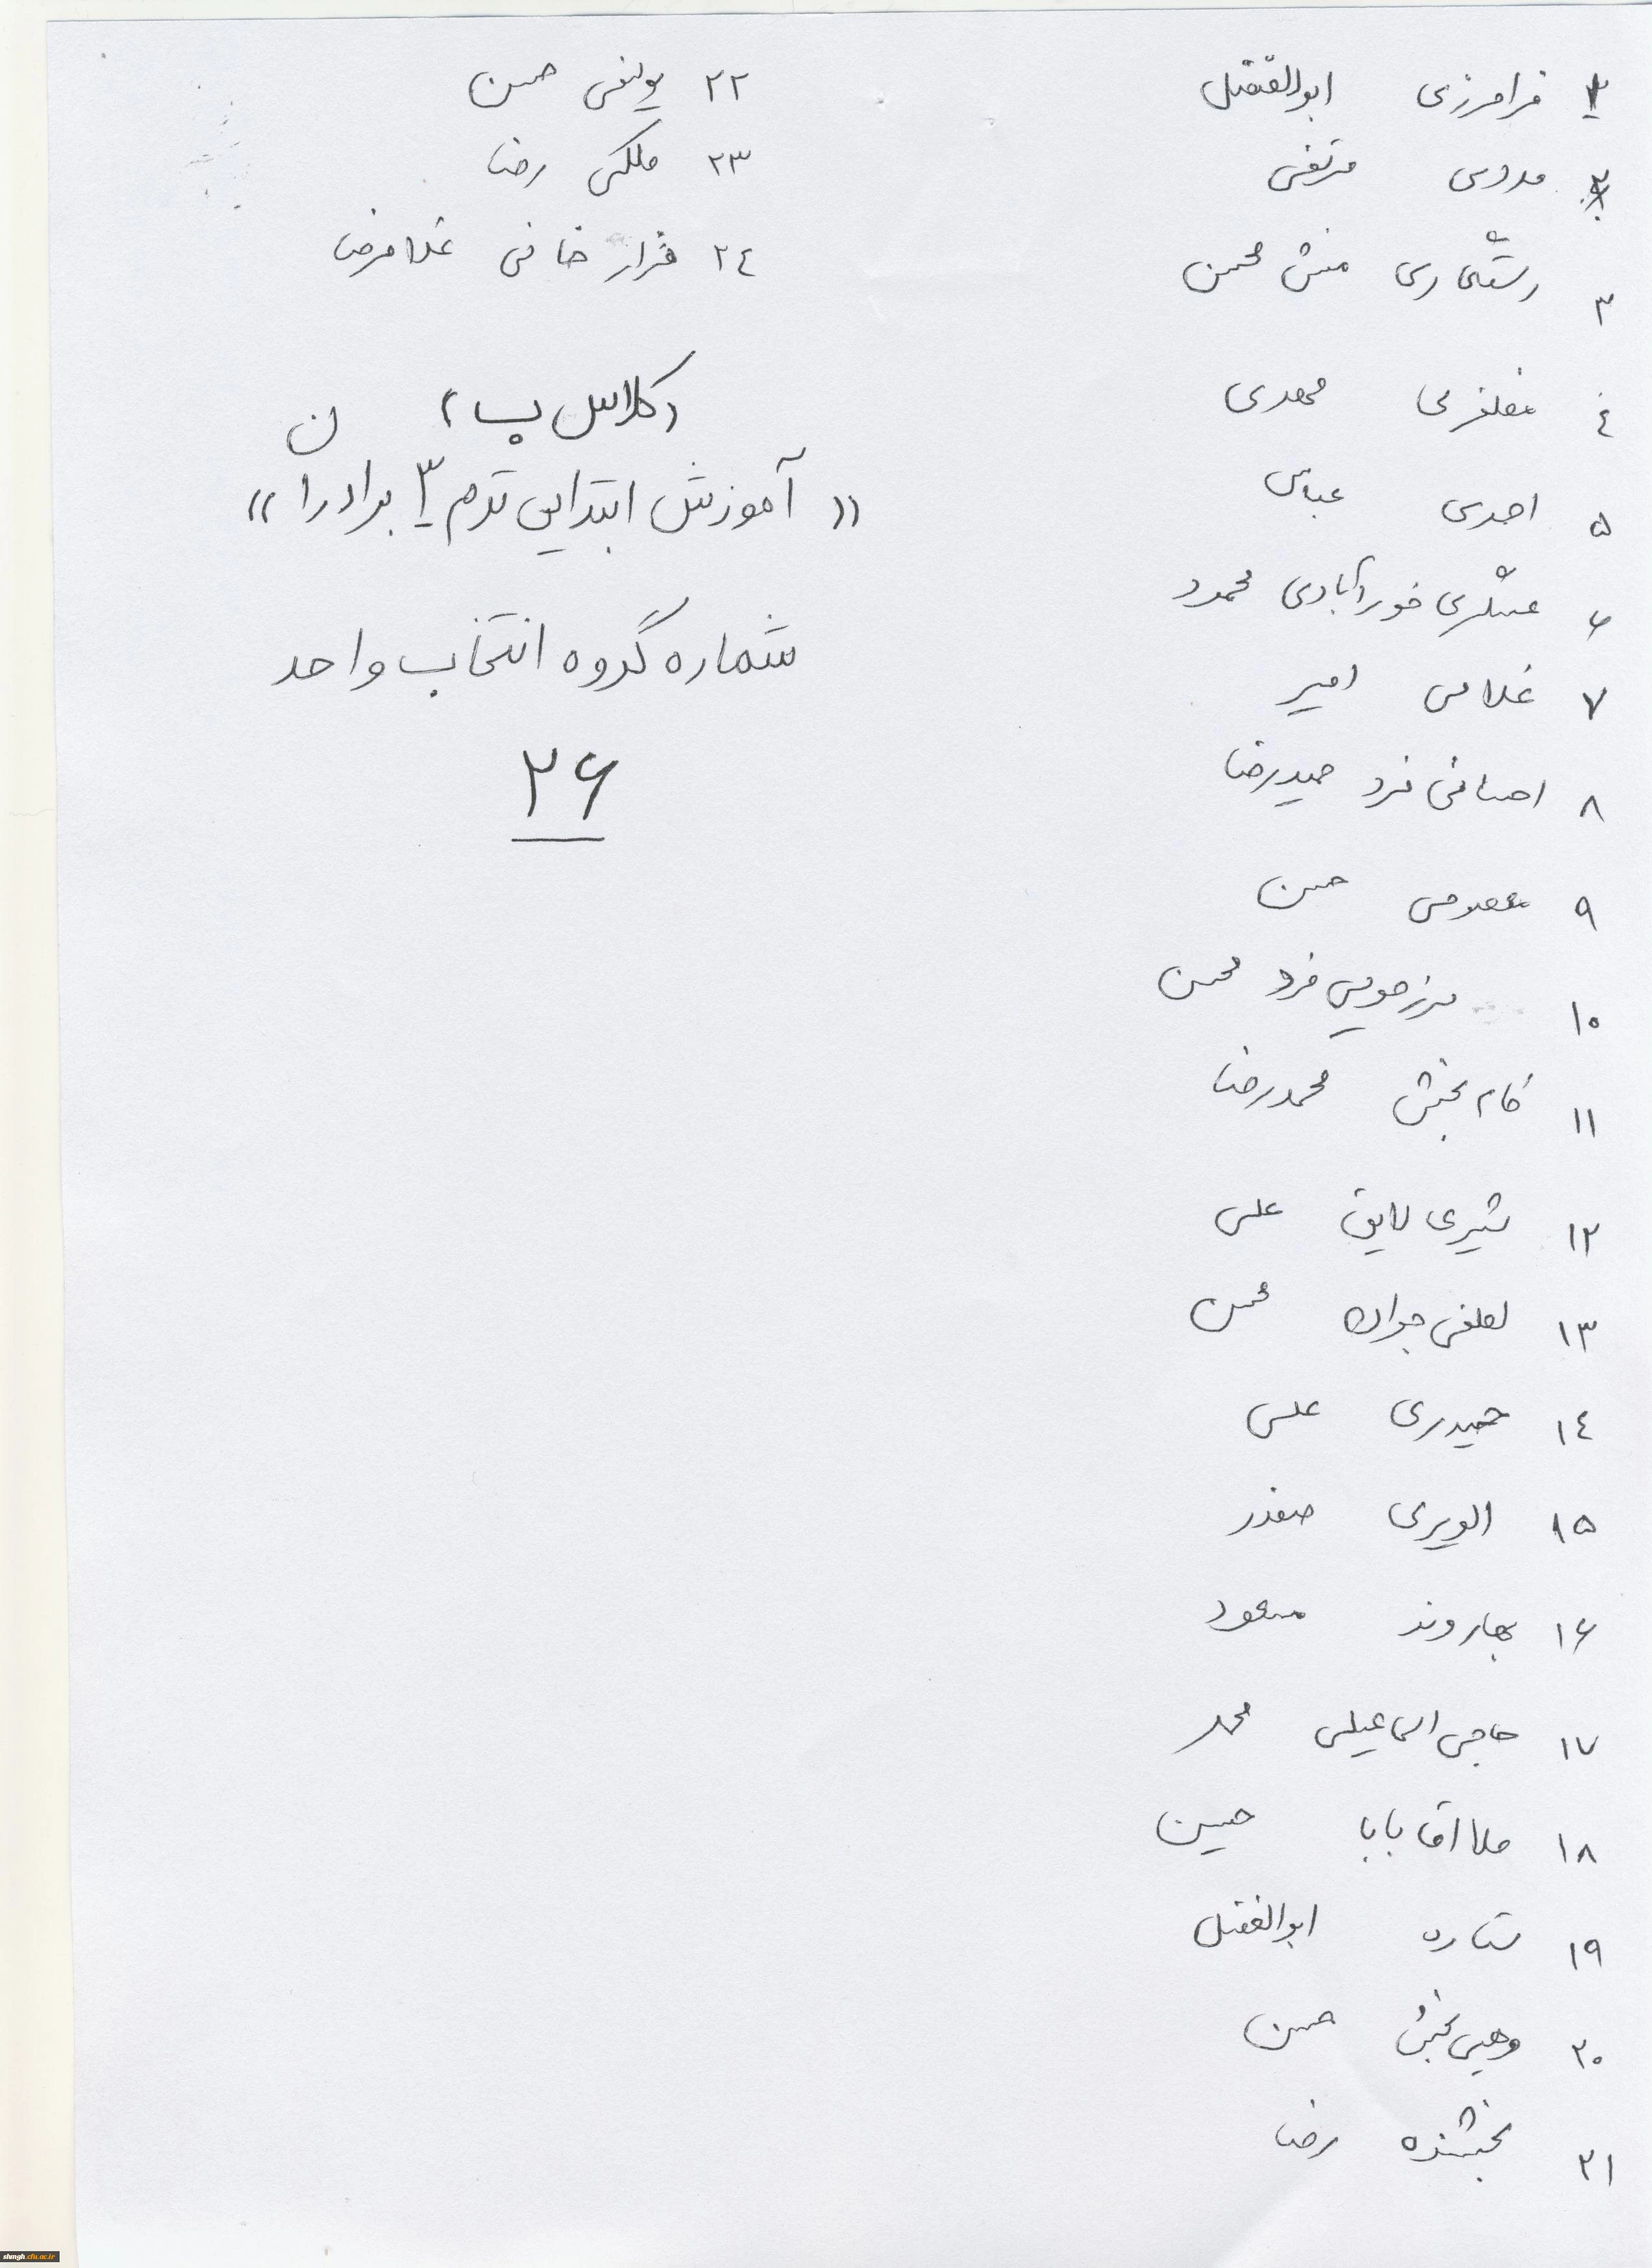 ۱ فرامرزی ابوالفضل
۲ مددی مرتضی
۳ رستگاری منش محسن
٤ مظفری مهدی
۵ احدی عباس
۶ عسگری خورآبادی محمود
۷ غلامی امیر
۸ احسانی فرد حمیدرضا
۹ معصومی حسن
۱۰ فرد محسن
۱۱ کام بخش محمدرضا
۱۲ شیری لایق علی
۱۳ لطفی جوان محسن
۱٤ حیدری علی
۱۵ الویری صفدر
۱۶ بهاروند مسعود
۱۷ حاجی اسماعیلی محمد
۱۸ ملا اقا بابا حسین
۱۹ ستاره ابوالفضل
۲۰ بخش حسن
۲۱ بخشنده رضا
۲۲ یوسفی حسن
۲۳ ملکی رضا
۲٤ قراز خانی غلامرضا
(کلاس ب)
«آموزش ابتدایی ترم ۳ برادران»
شماره گروه انتخاب واحد
۲۶
shmgh.cfu.ac.ir